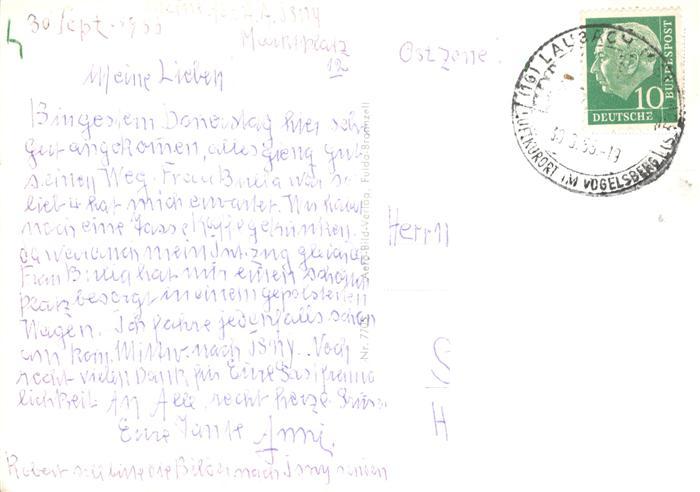 30 Sept. 1955
Isny
Marktplatz
12a
Ostzone
Meine Lieben
Bin gestern Donerstag hier sehr
gut angekomen, alles gieng gut
seinen Weg. Frau war so
lieb & hat mich erwartet. Wir haben
noch eine Tasse Kaffe getrunken.
da war auch mein
Frau hat mir einen schönen
Platz besorgt in einem gepolsterten
Wagen. Ich fahre jedenfalls schon
am kom. Mittw. nach Isny. Noch
recht vielen Dank für Eure Gastfreund
lichkeit. An Alle recht herzl. Grüsse
Eure Tante Anni.
Robert soll bitte die Bilder nach Isny senden
Aero-Bild-Verlag, Fulda-Bronnzell
Herrn
S
H
(16) LAUBACH
LUFTKURORT IM VOGELSBERG
10
DEUTSCHE
BUNDESPOST